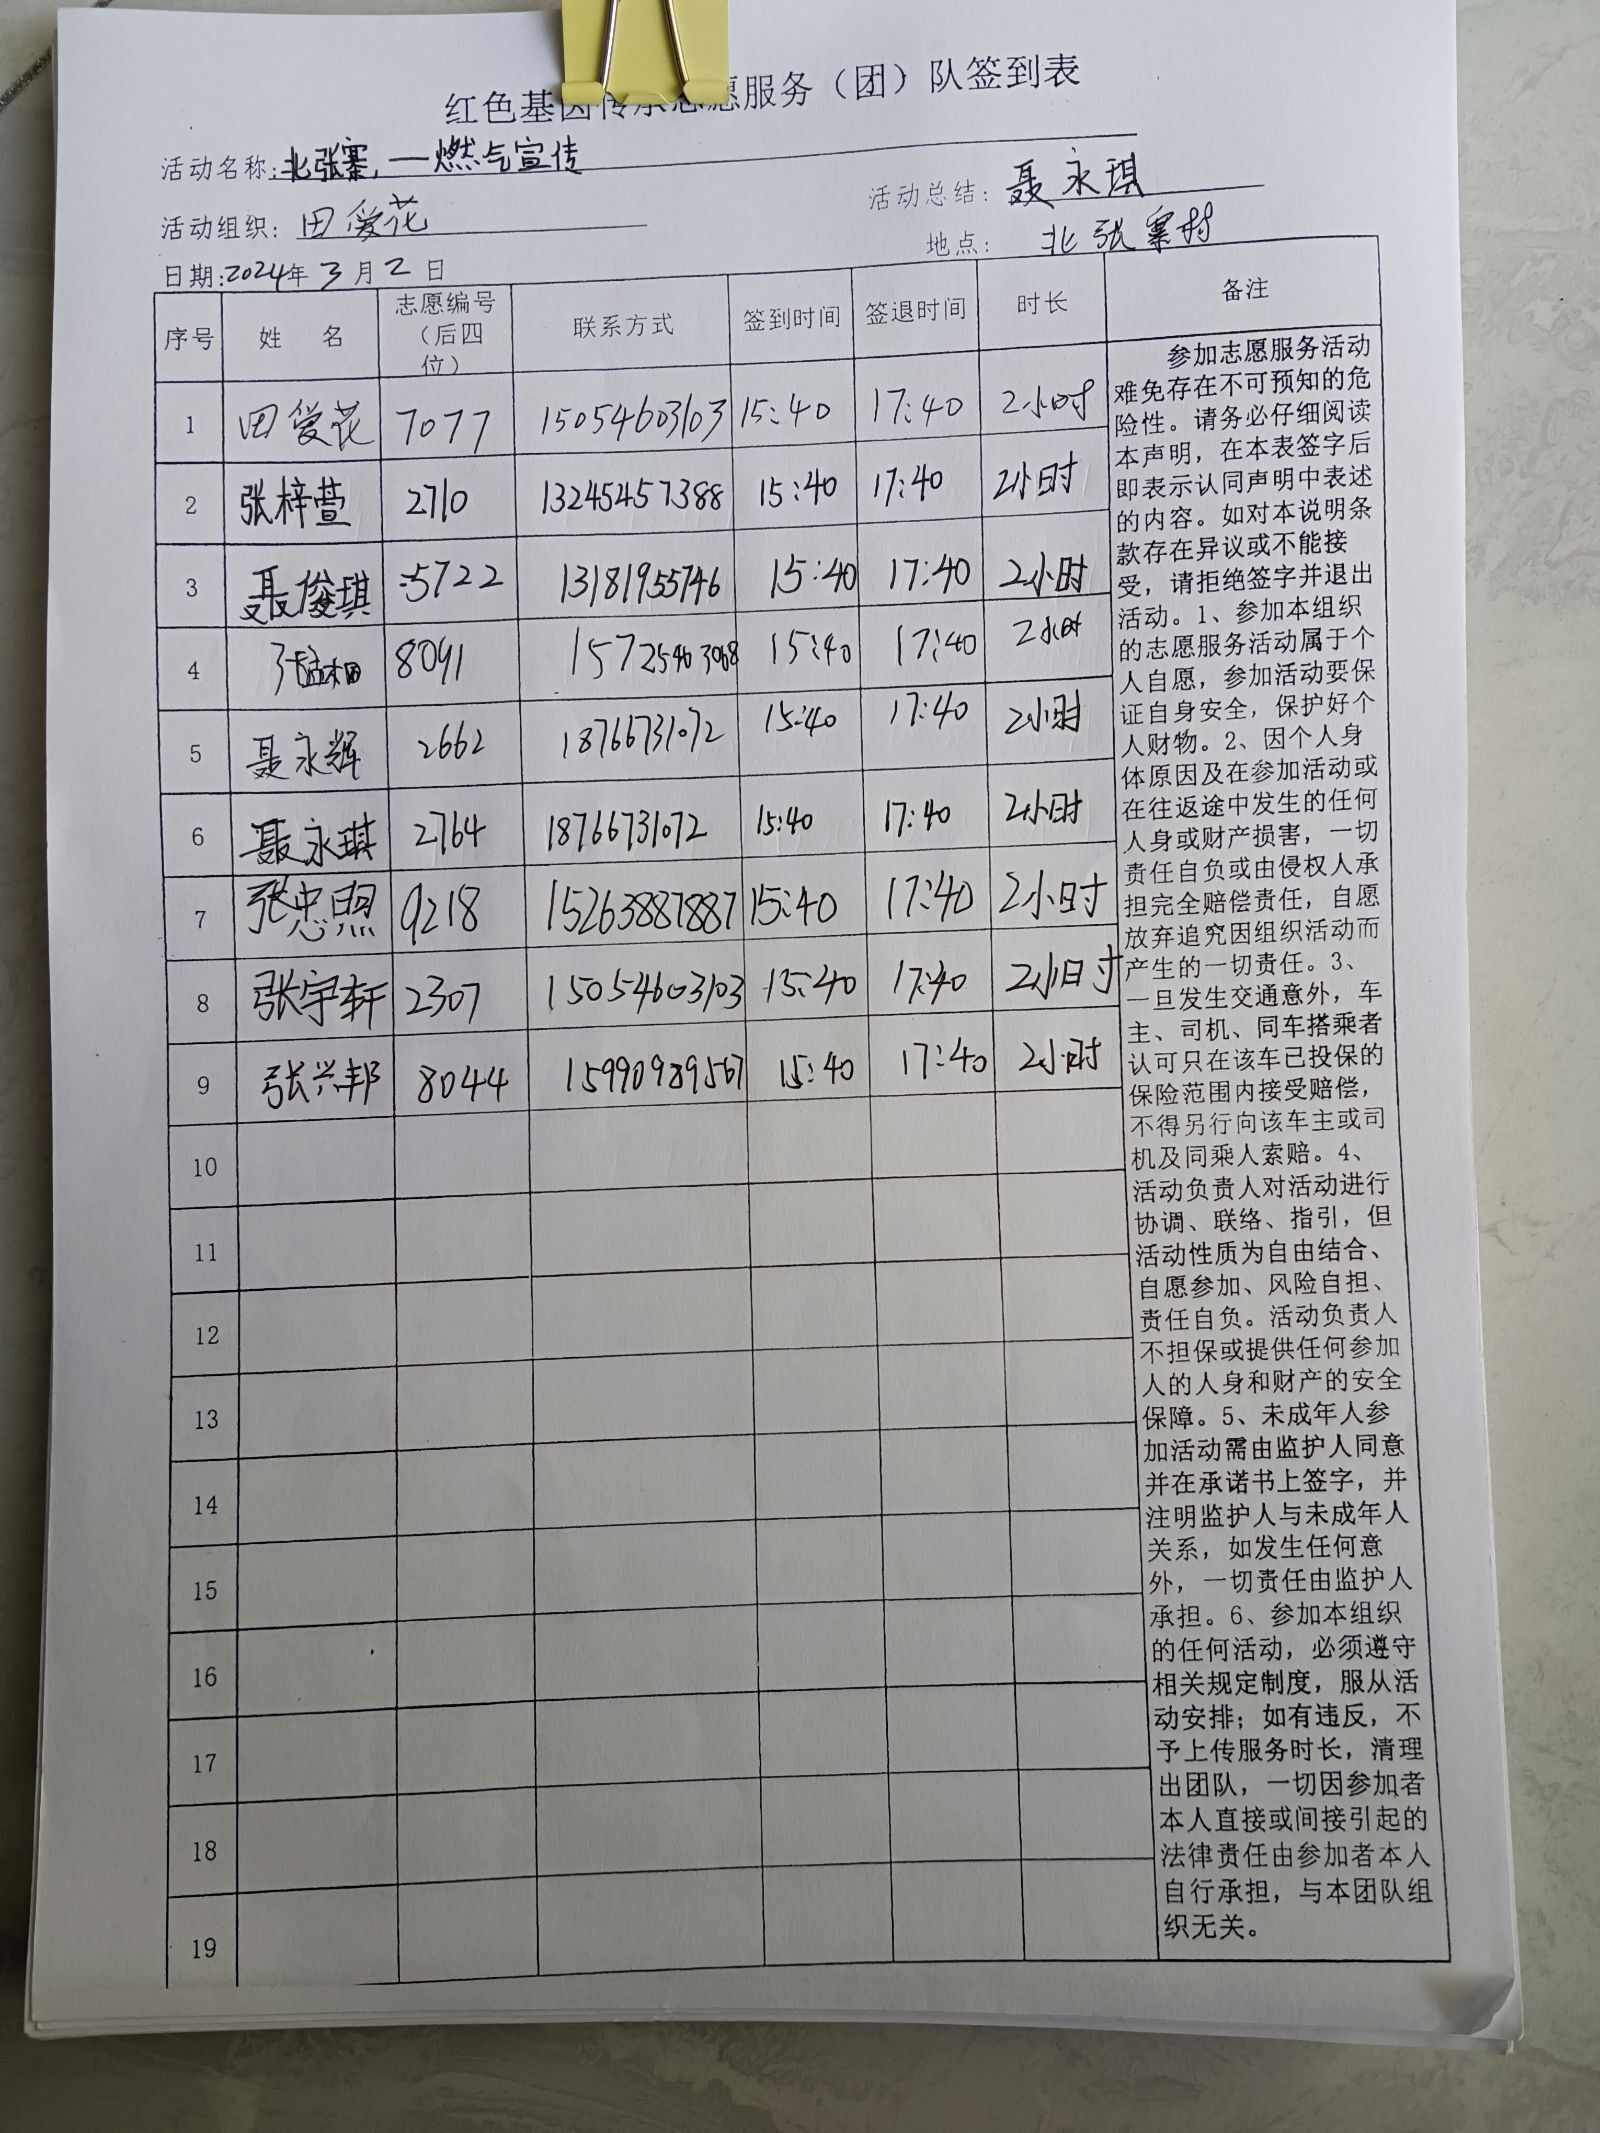 红色基因传承志愿服务（团）队签到表
活动名称:北张寨,一燃气宣传
活动总结:聂永琪
活动组织:田爱花
地点:北张寨村
日期:2024年3月2日
序号 姓 名 志愿编号（后四位） 联系方式 签到时间 签退时间 时长 备注
1 田爱花 7077 15054603103 15:40 17:40 2小时
2 张梓萱 2710 13245457388 15:40 17:40 2小时
3 聂俊琪 5722 13181955746 15:40 17:40 2小时
4 8091 15:40 17:40 2小时
5 聂永辉 2662 18766731072 15:40 17:40 2小时
6 聂永琪 2764 18766731072 15:40 17:40 2小时
7 张忠照 9218 15263887887 15:40 17:40 2小时
8 张宇轩 2307 15054603103 15:40 17:40 2小时
9 张兴邦 8044 15990989567 15:40 17:40 2小时
10
11
12
13
14
15
16
17
18
19
参加志愿服务活动
难免存在不可预知的危
险性。请务必仔细阅读
本声明，在本表签字后
即表示认同声明中表述
的内容。如对本说明条
款存在异议或不能接
受，请拒绝签字并退出
活动。1、参加本组织
的志愿服务活动属于个
人自愿，参加活动要保
证自身安全，保护好个
人财物。2、因个人身
体原因及在参加活动或
在往返途中发生的任何
人身或财产损害，一切
责任自负或由侵权人承
担完全赔偿责任，自愿
放弃追究因组织活动而
产生的一切责任。3、
一旦发生交通意外，车
主、司机、同车搭乘者
认可只在该车已投保的
保险范围内接受赔偿，
不得另行向该车主或司
机及同乘人索赔。4、
活动负责人对活动进行
协调、联络、指引，但
活动性质为自由结合、
自愿参加、风险自担、
责任自负。活动负责人
不担保或提供任何参加
人的人身和财产的安全
保障。5、未成年人参
加活动需由监护人同意
并在承诺书上签字，并
注明监护人与未成年人
关系，如发生任何意
外，一切责任由监护人
承担。6、参加本组织
的任何活动，必须遵守
相关规定制度，服从活
动安排；如有违反，不
予上传服务时长，清理
出团队，一切因参加者
本人直接或间接引起的
法律责任由参加者本人
自行承担，与本团队组
织无关。